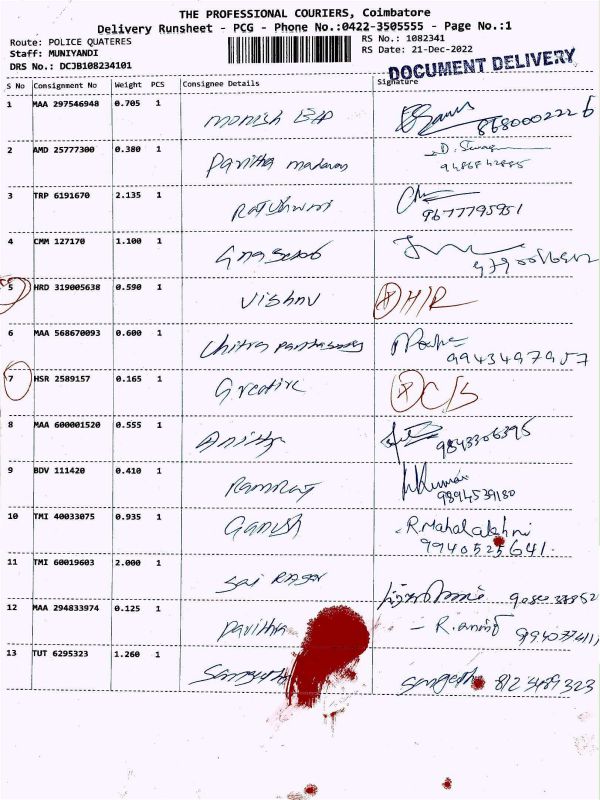 THE PROFESSIONAL COURIERS, Coimbatore
Delivery Runsheet - PCG - Phone No.:0422-3505555 - Page No.:1
Route: POLICE QUATERES
RS No.: 1082341
Staff: MUNIYANDI
RS Date: 21-Dec-2022
DRS No.: DCJB108234101
DOCUMENT DELIVERY
S No Consignment No Weight PCS Consignee Details Signature
1 MAA 297546948 0.705 1
8680002226
2 AMD 25777300 0.380 1 Pavitha
3 TRP 6191670 2.135 1
9677795951
4 CMM 127170 1.100 1
5 HRD 319005638 0.590 1 Vishnu
6 MAA 568670093 0.600 1 Chitra
9943497957
7 HSR 2589157 0.165 1 Greative
8 MAA 600001520 0.555 1 Anitha
9843306395
9 BDV 111420 0.410 1 Ramraj Kumar
9894539180
10 TMI 40033075 0.935 1 Ganesh R. Mahalakshmi
9940525641.
11 TMI 60019603 2.000 1 Sai
12 MAA 294833974 0.125 1 Pavitha
13 TUT 6295323 1.260 1 Sangeetha